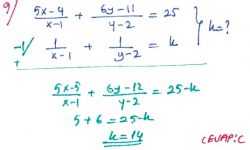 9) (5x-4)/(x-1) + (6y-11)/(y-2) = 25
k=?
-1/ 1/(x-1) + 1/(y-2) = k
+
(5x-5)/(x-1) + (6y-12)/(y-2) = 25-k
5+6 = 25-k
k=14
CEVAP:C